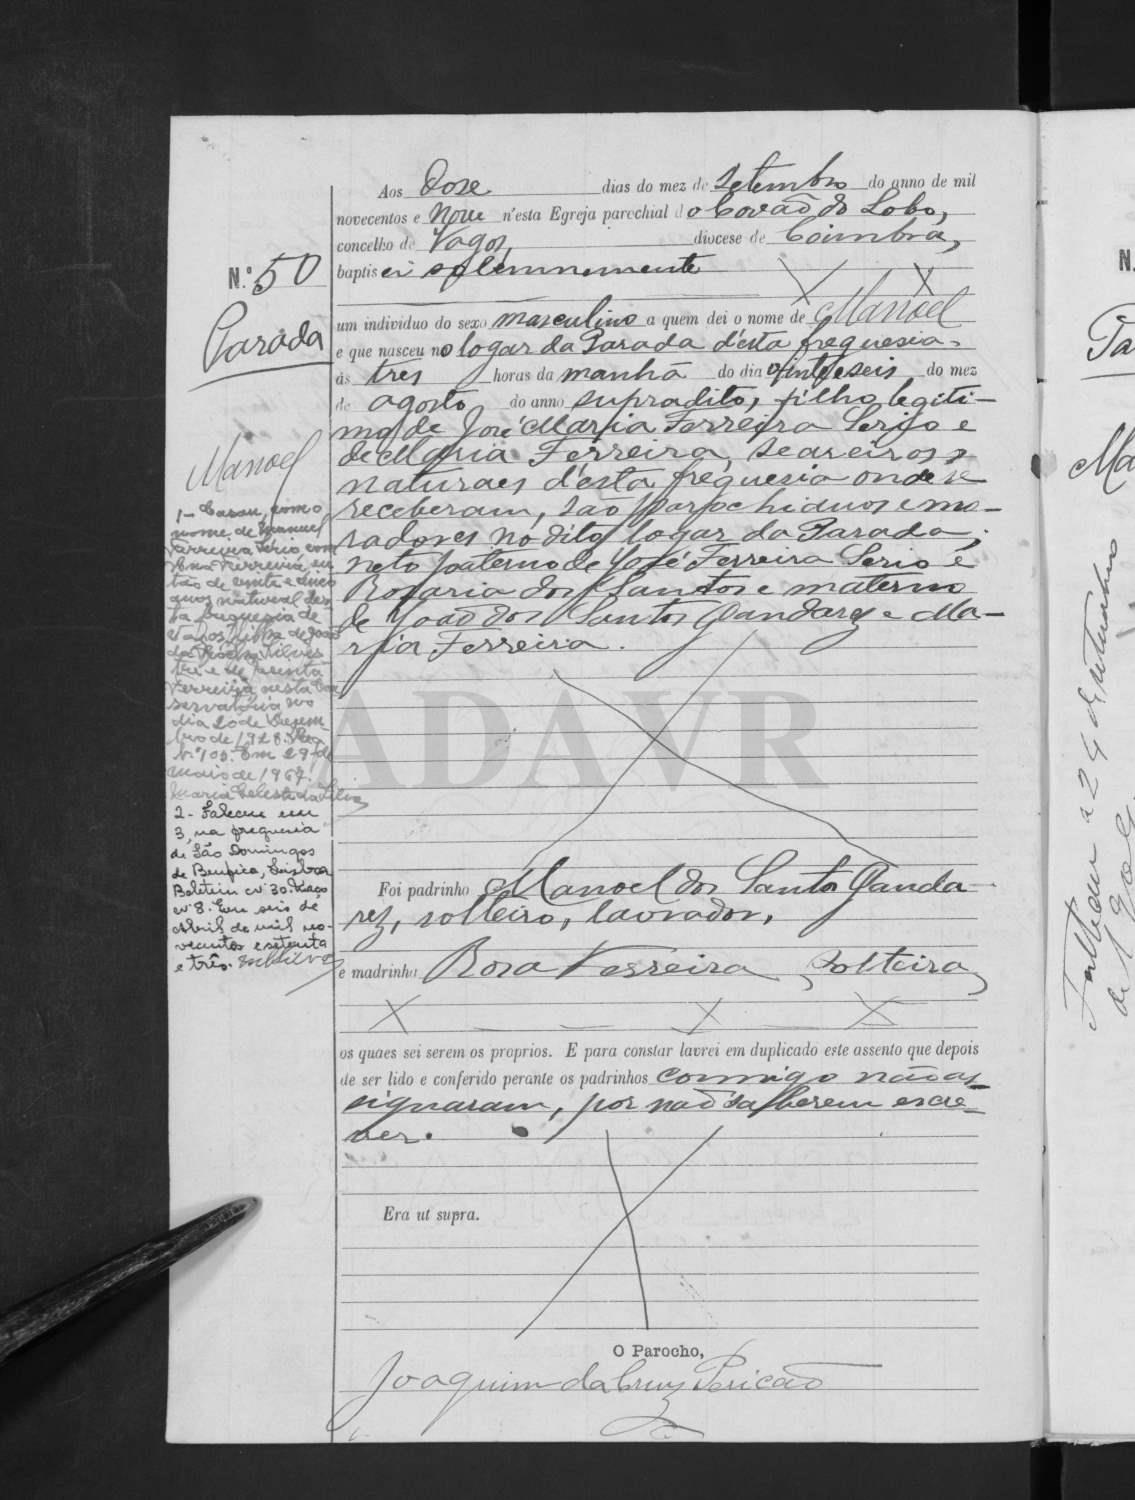 Aos Dose dias do mez de Setembro do anno de mil
novecentos e nove n'esta Egreja parochial do Covão do Lobo,
concelho de Vagos, diocese de Coimbra,
N.º 50
baptisei solemnemente
um individuo do sexo masculino a quem dei o nome de Manoel
Parada
e que nasceu no logar da Parada d'esta freguesia
ás tres horas da manhã do dia vinte e seis do mez
de agosto do anno supradito, filho legiti-
mo de José Maria Ferreira Serio e
de Maria Ferreira, seareiros,
naturaes d'esta freguesia onde se
receberam, são parochianos e mo-
radores no dito logar da Parada;
neto paterno de José Ferreira Serio e
Rosaria dos Santos e materno
de João dos Santos Gandarez e Ma-
ria Ferreira.
Manoel
1- Casou, com o
nome de Manuel
Ferreira Sério, com
Ferreira, en
tão de vinte e cinco
anos, natural des
ta freguesia de
filha de João
da Rocha Silves
tre e de
Ferreira, nesta Con
servatória no
dia 20 de Dezem
bro de 1928. Reg
n.º 100. Em 29 de
maio de 1967.
Maria Celeste da Silva
2- Faleceu em
3, na freguesia
de São Domingos
de Benfica, Lisboa
Boletim nº 30. Maço
nº 8. Em seis de
Abril de mil no-
vecentos e setenta
e três.
ADAVR
Foi padrinho Manoel dos Santos Ganda-
rez, solteiro, lavrador,
e madrinha Rosa Ferreira, solteira,
os quaes sei serem os proprios. E para constar lavrei em duplicado este assento que depois
de ser lido e conferido perante os padrinhos commigo não as
signaram, por não saberem escre-
ver.
Era ut supra.
O Parocho,
Joaquim da Cruz Pericão
N.
Pa
Ma
Falleceu a 24 de setembro
de 1